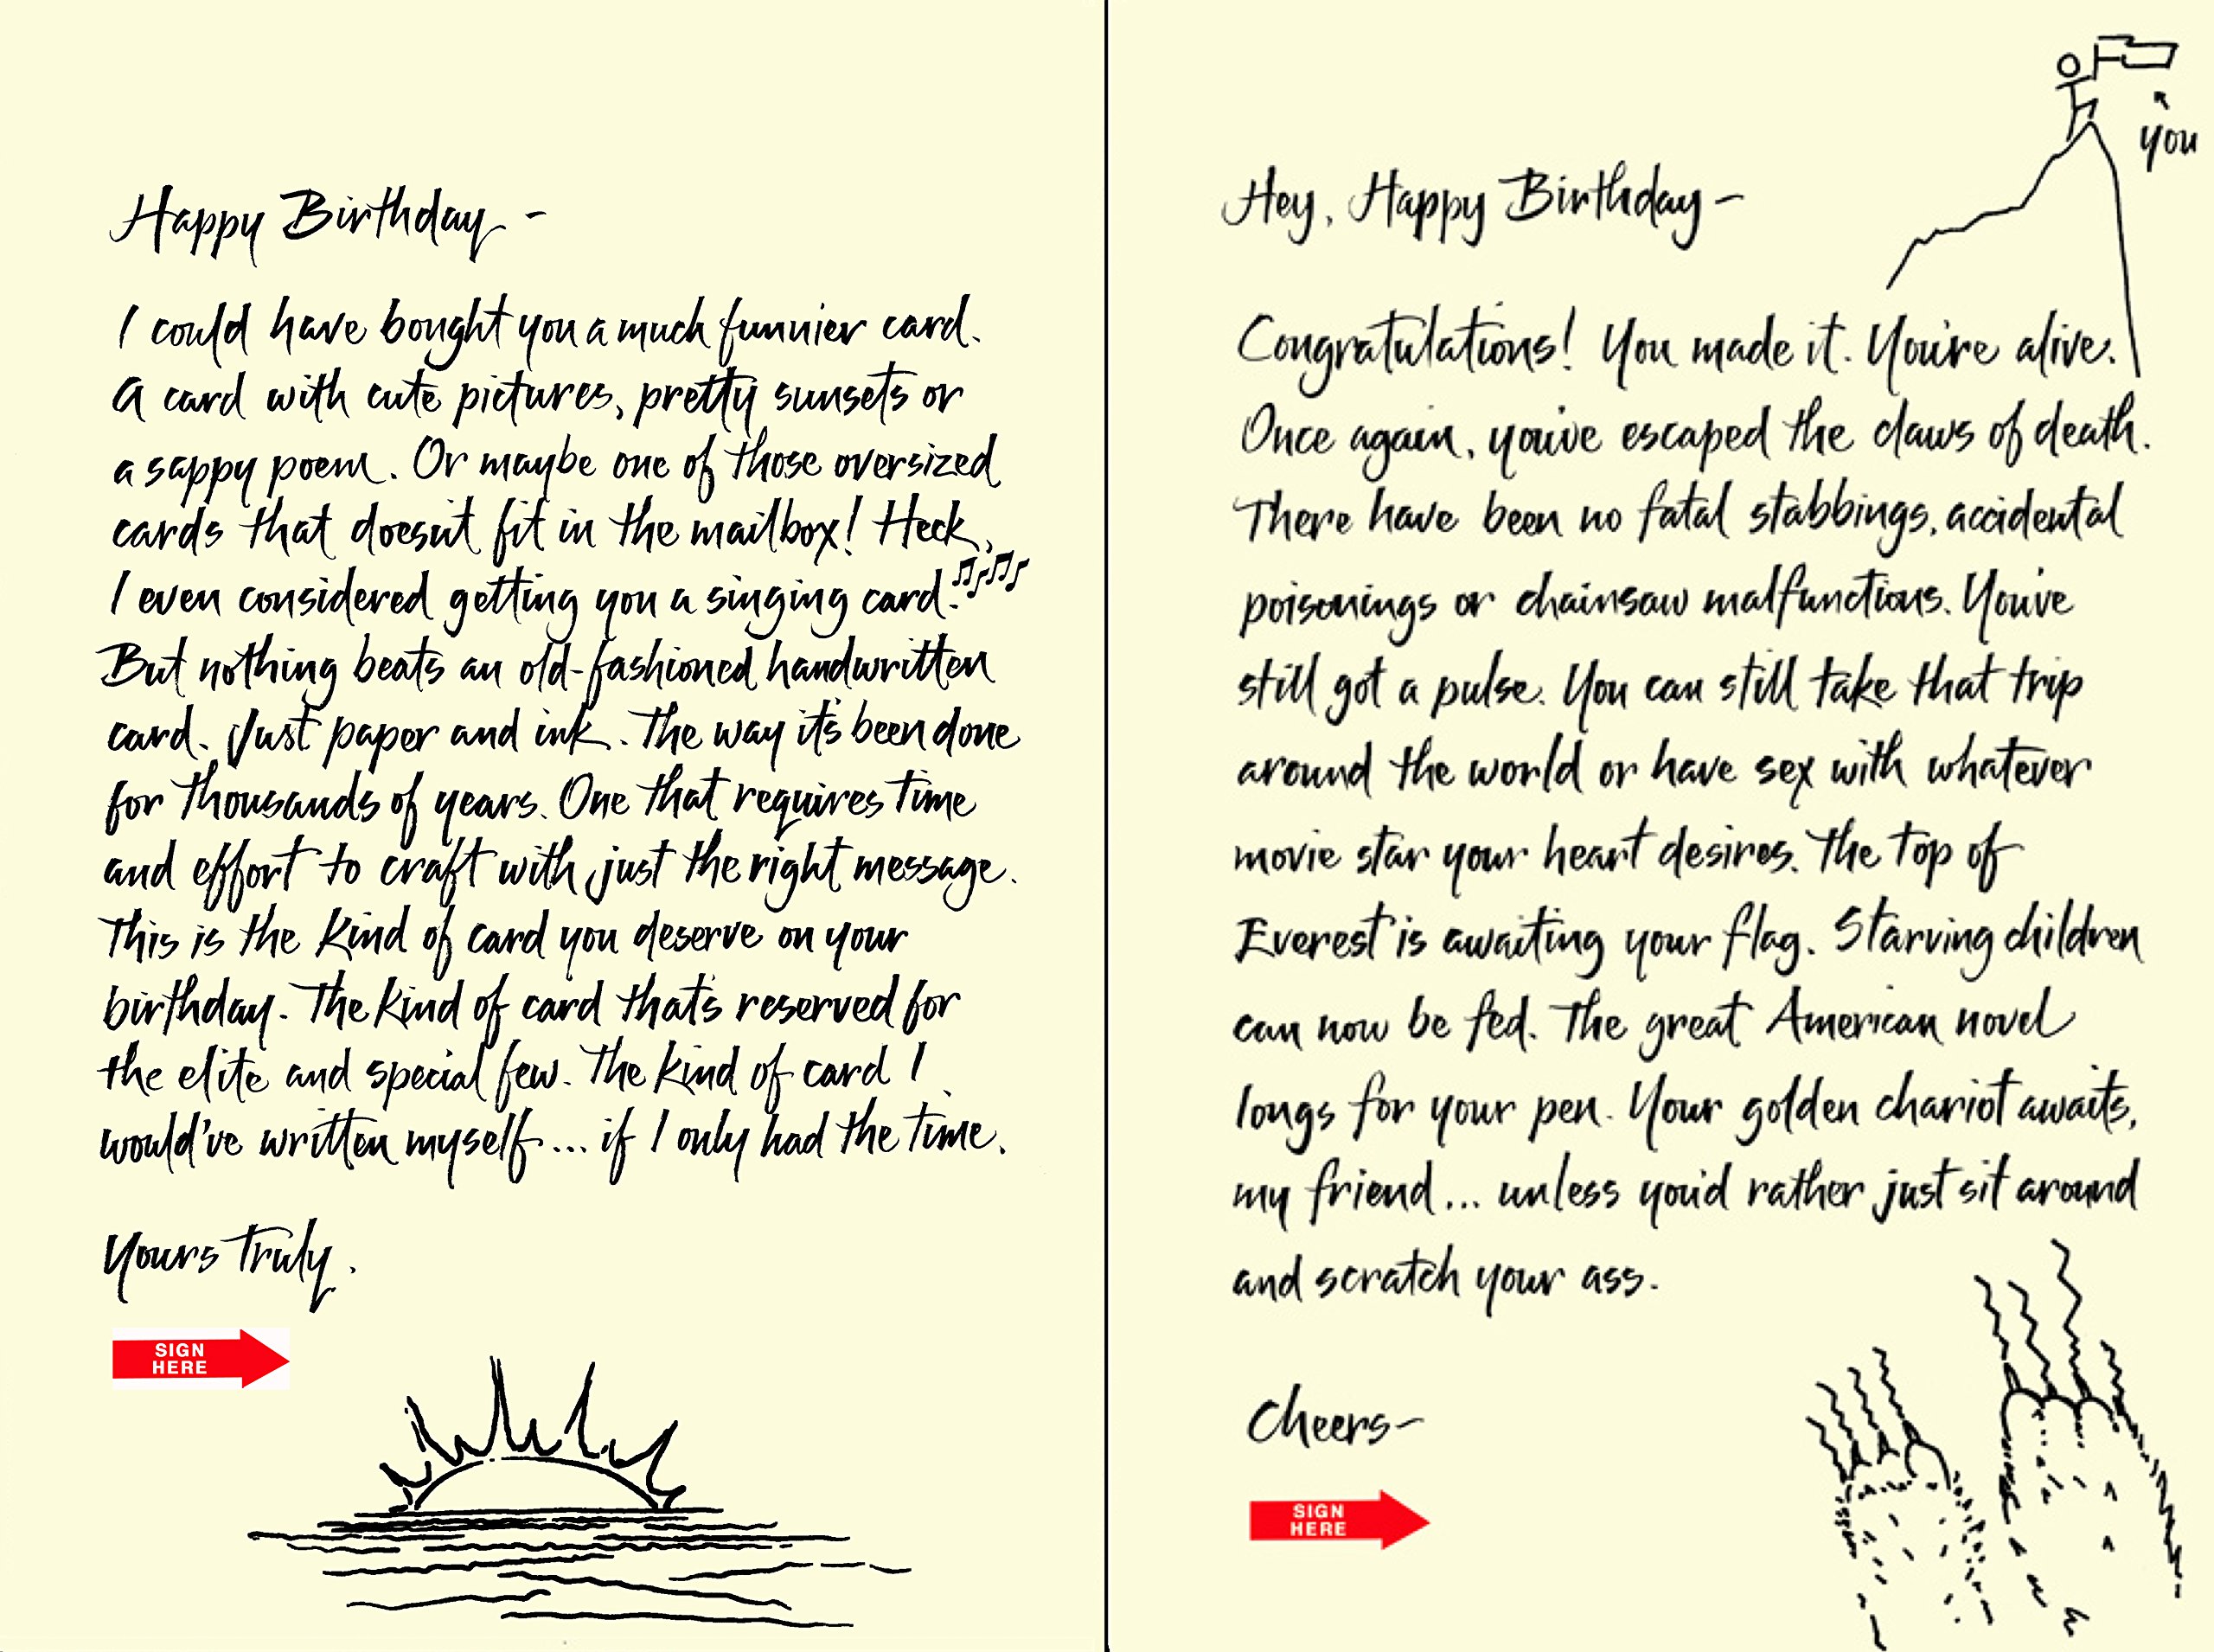 Happy Birthday -
I could have bought you a much funnier card.
A card with cute pictures, pretty sunsets or
a sappy poem. Or maybe one of those oversized
cards that doesn't fit in the mailbox! Heck,
I even considered getting you a singing card.
But nothing beats an old-fashioned handwritten
card. Just paper and ink. The way it's been done
for thousands of years. One that requires time
and effort to craft with just the right message.
This is the kind of card you deserve on your
birthday. The kind of card that's reserved for
the elite and special few. The kind of card I
would've written myself... if I only had the time.
Yours Truly,
SIGN
HERE
you
Hey, Happy Birthday-
Congratulations! You made it. You're alive.
Once again, you've escaped the claws of death.
There have been no fatal stabbings, accidental
poisonings or chainsaw malfunctions. You've
still got a pulse. You can still take that trip
around the world or have sex with whatever
movie star your heart desires. The top of
Everest is awaiting your flag. Starving children
can now be fed. The great American novel
longs for your pen. Your golden chariot awaits,
my friend... unless you'd rather just sit around
and scratch your ass.
Cheers-
SIGN
HERE